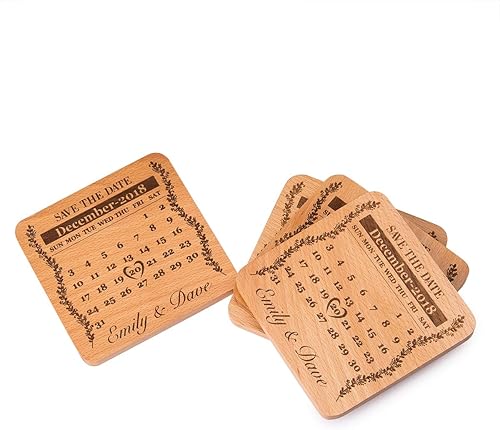 SAVE THE DATE
December-2018
SUN MON TUE WED THU FRI SAT
1 2
3 4 5 6 7 8 9
10 11 12 13 14 15 16
17 18 19 20 21 22 23
24 25 26 27 28 29 30
31
Emily & Dave
SAVE THE DATE
December-2018
SUN MON TUE WED THU FRI SAT
1 2
3 4 5 6 7 8 9
10 11 12 13 14 15 16
17 18 19 20 21 22 23
24 25 26 27 28 29 30
31
Emily & Dave